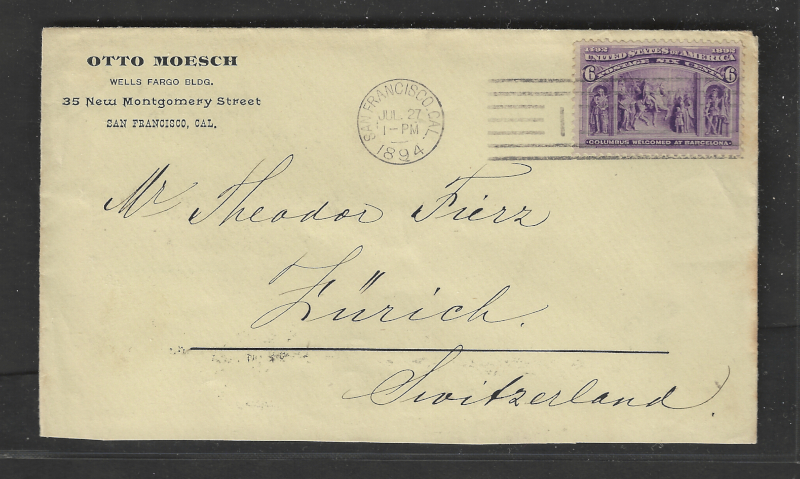 OTTO MOESCH
WELLS FARGO BLDG.
35 New Montgomery Street
SAN FRANCISCO, CAL.
SAN FRANCISCO, CAL.
JUL 27
1-PM
1894
1
1492 1892
UNITED STATES OF AMERICA
POSTAGE SIX CENTS
6 6
COLUMBUS WELCOMED AT BARCELONA
Mr Theodor Fierz
Zürich.
Switzerland.